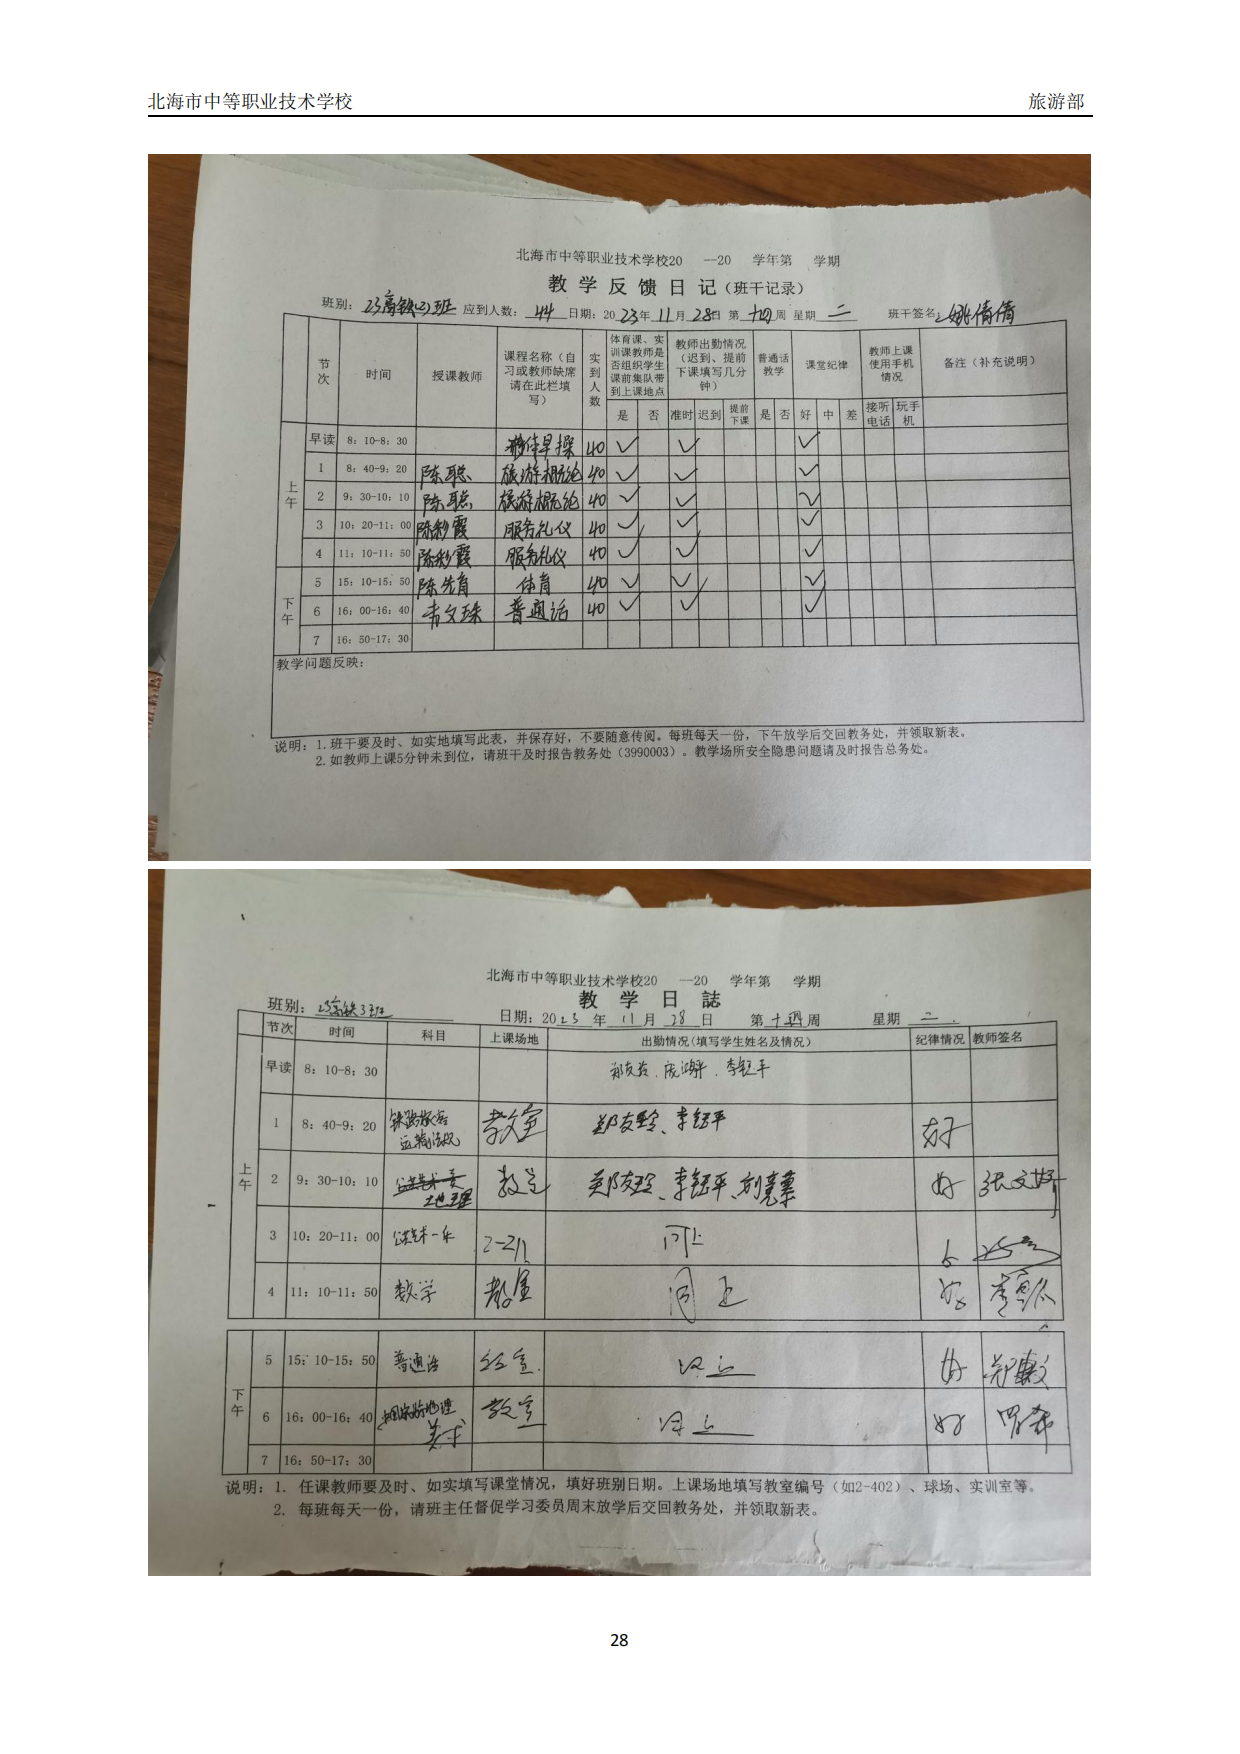 北海市中等职业技术学校 旅游部
北海市中等职业技术学校20 —20 学年第 学期
教 学 反 馈 日 记（班干记录）
班别： 23高铁(3)班 应到人数： 44 日期：2023年11月28日 第十四周 星期 二 班干签名： 姚倩倩
节次 时间 授课教师 课程名称（自习或教师缺席请在此栏填写） 实到人数 体育课、实训课教师是否组织学生课前集队带到上课地点 教师出勤情况（迟到、提前下课填写几分钟） 普通话教学 课堂纪律 教师上课使用手机情况 备注（补充说明）
是 否 准时 迟到 提前下课 是 否 好 中 差 接听电话 玩手机
上午
早读 8：10-8：30 早操 40 ✓ ✓ ✓
1 8：40-9：20 陈聪 旅游概论 40 ✓ ✓ ✓
2 9：30-10：10 陈聪 旅游概论 40 ✓ ✓ ✓
3 10：20-11：00 陈彩霞 服务礼仪 40 ✓ ✓ ✓
4 11：10-11：50 陈彩霞 服务礼仪 40 ✓ ✓ ✓
下午
5 15：10-15：50 陈先育 体育 40 ✓ ✓ ✓
6 16：00-16：40 韦文珠 普通话 40 ✓ ✓ ✓
7 16：50-17：30
教学问题反映：
说明：1.班干要及时、如实地填写此表，并保存好，不要随意传阅。每班每天一份，下午放学后交回教务处，并领取新表。
2.如教师上课5分钟未到位，请班干及时报告教务处（3990003）。教学场所安全隐患问题请及时报告总务处。
北海市中等职业技术学校20 —20 学年第 学期
教 学 日 誌
班别：23高铁3班 日期：2023 年 11 月 28 日 第 十四 周 星期 二
节次 时间 科目 上课场地 出勤情况(填写学生姓名及情况) 纪律情况 教师签名
上午
早读 8：10-8：30
1 8：40-9：20 铁路旅客运输 教室 郑友玲、李钰平 好
2 9：30-10：10 地理 教室 郑友玲、李钰平 好
3 10：20-11：00 同上
4 11：10-11：50 数学 教室 同上 好
下午
5 15：10-15：50 普通话 教室 同上 好
6 16：00-16：40 美术 教室 同上 好
7 16：50-17：30
说明：1. 任课教师要及时、如实填写课堂情况，填好班别日期。上课场地填写教室编号（如2-402）、球场、实训室等。
2. 每班每天一份，请班主任督促学习委员周末放学后交回教务处，并领取新表。
28